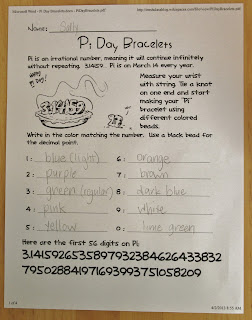 Name: Sally
Pi Day Bracelets
Pi is an irrational number, meaning it will continue infinitely
without repeating. 3.14159... Pi is on March 14 every year.
HAPPY
PI DAY!
3.14159
Measure your wrist
with string. Tie a knot
on one end and start
making your "Pi"
bracelet using
different colored
beads.
Write in the color matching the number. Use a black bead for
the decimal point.
1: blue (light)
2: purple
3: green (regular)
4: pink
5: yellow
6: orange
7: brown
8: dark blue
9: white
0: lime green
Here are the first 56 digits on Pi:
3.1415926535897932384626433832
795028841971693993751058209
1 of 4